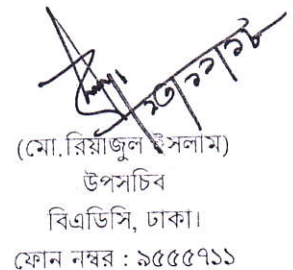 (মো.রিয়াজুল ইসলাম)
উপসচিব
বিএডিসি, ঢাকা।
ফোন নম্বর : ৯৫৫৫৭১১